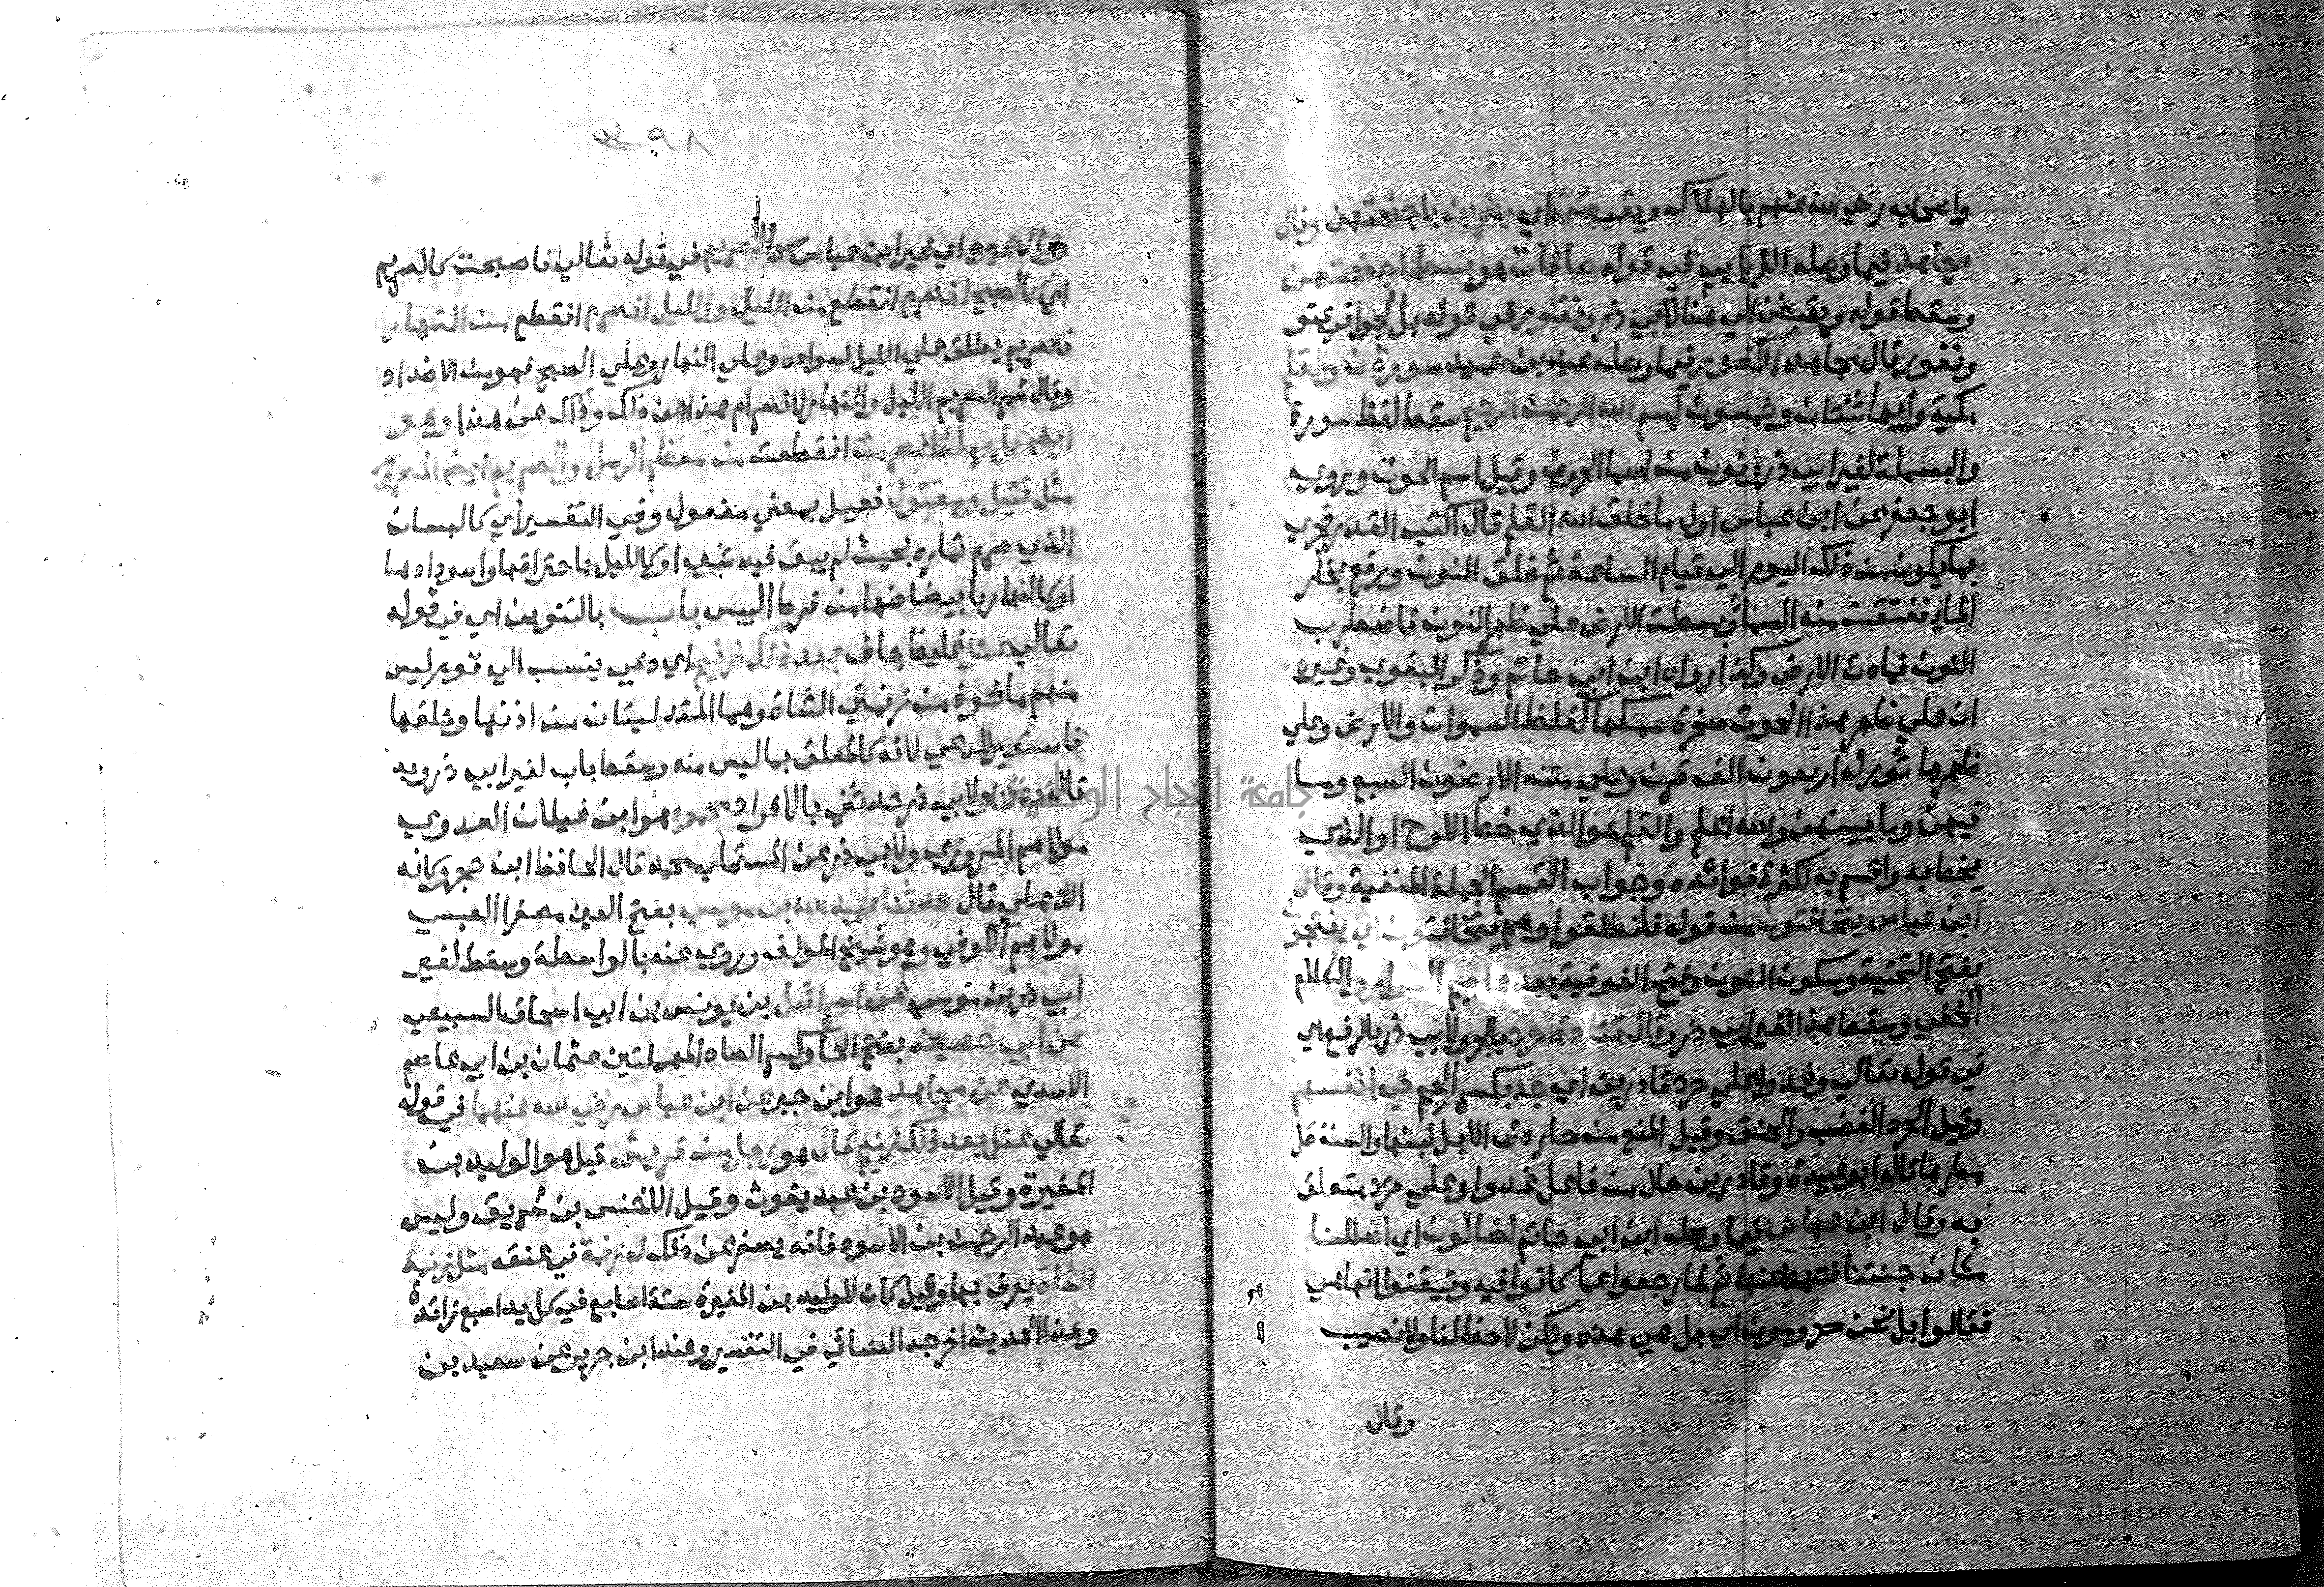 واصحابه رضي الله عنهم بالهلاك ويقبضن اي يضربن باجنحتهن وقال
مجاهد فيما وصله الفريابي في قوله صافات هو بسط اجنحتهن
وسقط قوله ويقبضن الي هنا لابي ذر ونفور في قوله بل لجوا في عتو
ونفور قال مجاهد الكفور فيما وصله عبد بن حميد سورة ن والقلم
مكية وايها ثنتان وخمسون بسم الله الرحمن الرحيم سقط لفظ سورة
والبسملة لغير ابي ذر ونون من اسما الحروف وقيل اسم الحوت وروي
ابو جعفر عن ابن عباس اول ما خلق الله القلم قال اكتب القدر فجري
بما يكون من ذلك اليوم الي قيام الساعة ثم خلق النون ورفع بخار
الماء ففتقت منه السما وبسطت الارض علي ظهر النون فاضطرب
النون فمادت الارض وكذا رواه ابن ابي حاتم وذكر البغوي وغيره
ان علي ظهر هذا الحوت صخرة سمكها كغلظ السموات والارض وعلي
ظهرها ثور له اربعون الف قرن وعلي متنه الارضون السبع وما
فيهن وما بينهن والله اعلم والقلم هو الذي خط اللوح او الذي
يخط به واقسم به لكثرة فوائده وجواب القسم الجملة المنفية وقال
ابن عباس يتخافتون من قوله فانطلقوا وهم يتخافتون اي ينتجون
بفتح التحتية وسكون النون وفتح الفوقية بعدها جيم السرار والكلام
الخفي وسقط هذا لغير ابي ذر وقال قتادة حرد بالجر ولابي ذر بالرفع اي
في قوله تعالي وغدوا علي حرد قادرين اي جد بكسر الجيم في انفسهم
وقيل الحرد الغضب والحنق وقيل المنع من حاردت الابل لبنها والسنة قل
مطرها قاله ابو عبيدة وقادرين حال من فاعل غدوا وعلي حرد متعلق
به وقال ابن عباس فيما وصله ابن ابي حاتم لضالون اي اضللنا
مكان جنتنا فتهنا عنها ثم لما رجعوا عما كانوا فيه وتيقنوا انها هي
فقالوا بل نحن محرومون اي بل هي هذه ولكن لا حظ لنا ولا نصيب
وقال
٣٩٨
وقال غيره اي غير ابن عباس كالصريم في قوله تعالي فاصبحت كالصريم
اي كالصبح انصرم انقطع من الليل والليل انصرم انقطع من النهار
فالصريم يطلق علي الليل لسواده وعلي النهار وعلي الصبح فهو من الاضداد
وقال شمر الصريم الليل والنهار لانصرام هذا عن ذلك وذاك عن هذا وهو
ايضا كل رملة انصرمت انقطعت من معظم الرمل والصريم ايضا المصروم
مثل قتيل ومقتول فعيل بمعني مفعول وفي التفسير اي كالبستان
الذي صرم ثماره بحيث لم يبق فيه شي او كالليل باحتراقها واسودادها
او كالنهار بابيضاضها من فرط اليبس باب بالتنوين اي في قوله
تعالي عتل غليظ جاف بعد ذلك زنيم اي دعي ينسب الي قوم ليس
منهم ماخوذ من زنمتي الشاة وهما المتدليتان من اذنها وحلقها
فاستعير للدعي لانه كالمعلق بما ليس منه وسقط باب لغير ابي ذر وبه
قال حدثنا ولابي ذر حدثني بالافراد محمود هو ابن غيلان العدوي
مولاهم المروزي ولابي ذر عن المستملي محمد قال الحافظ ابن حجر وكانه
الذهلي قال حدثنا عبيد الله بن موسي بفتح العين مصغرا العبسي
مولاهم الكوفي وهو شيخ المولف وروي عنه بالواسطة وسقط لغير
ابي ذر بن موسي عن اسرائيل بن يونس بن ابي اسحاق السبيعي
عن ابي حصين بفتح الحا وكسر الصاد المهملتين عثمان بن ابي عاصم
الاسدي عن مجاهد هو ابن جبر عن ابن عباس رضي الله عنهما في قوله
تعالي عتل بعد ذلك زنيم قال هو رجل من قريش قيل هو الوليد بن
المغيرة وقيل الاسود بن عبد يغوث وقيل الاخنس بن شريق وليس
هو عبد الرحمن بن الاسود فانه يصغر عن ذلك له زنمة في عنقه مثل زنمة
الشاة يعرف بها وقيل كان للوليد بن المغيرة ستة اصابع في كل يد اصبع زائدة
وهذا الحديث اخرجه النسائي في التفسير وعند ابن جرير عن سعيد بن
جامعة النجاح الوطنية